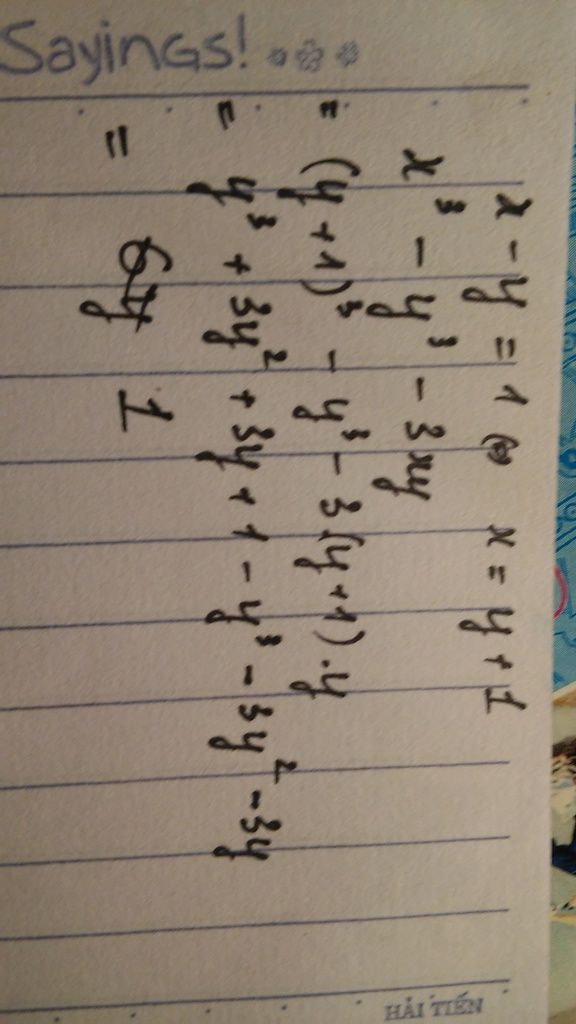 Sayings!
x - y = 1 ⇔ x = y + 1
x³ - y³ - 3xy
= (y + 1)³ - y³ - 3(y + 1).y
= y³ + 3y² + 3y + 1 - y³ - 3y² - 3y
= 1
HẢI TIẾN